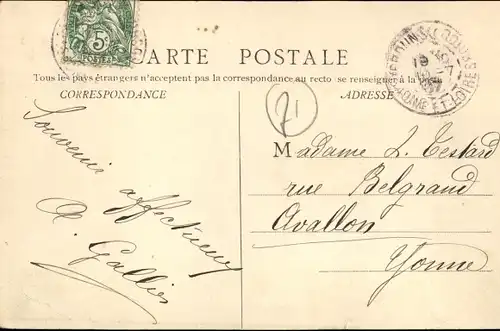 CARTE POSTALE
Tous les pays étrangers n'acceptent pas la correspondance au recto (se renseigner à la poste)
CORRESPONDANCE
ADRESSE
71
Souvenir
affectueux
Madame L. Testard
rue Belgrand
Avallon
Yonne
5c
POSTES
ET-LOIRE